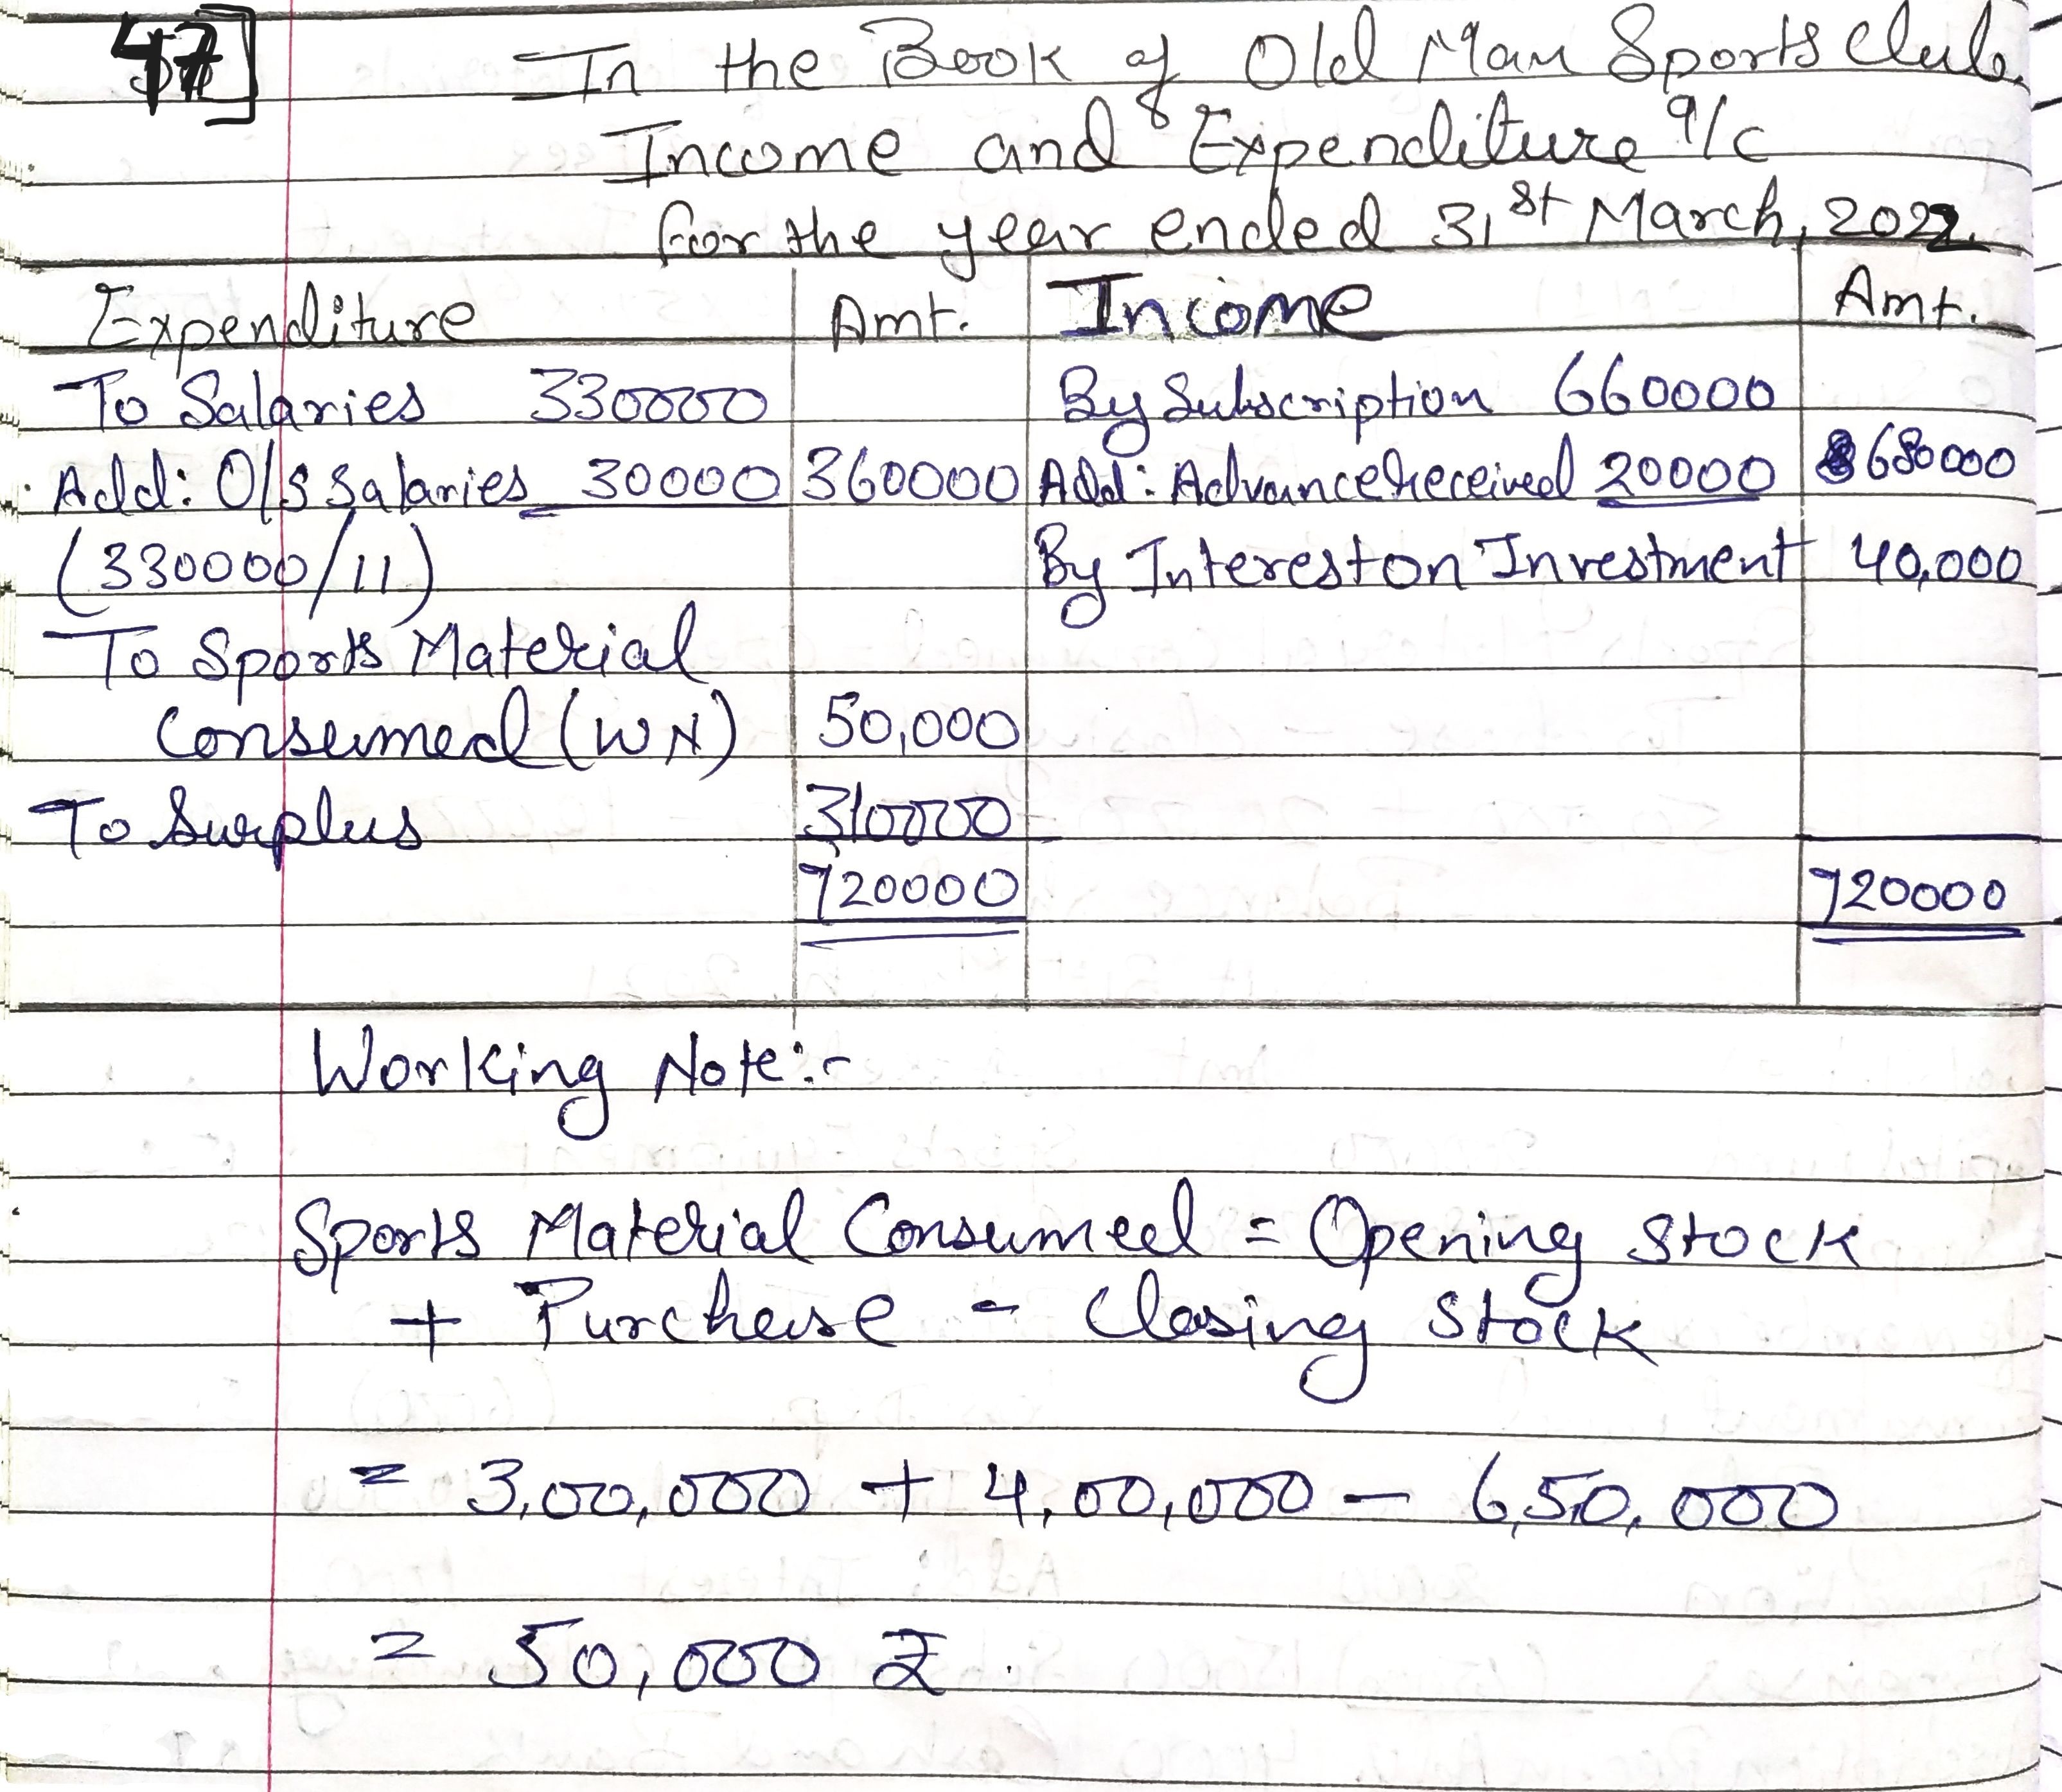 47]
In the Book of Old Man Sports Club
Income and Expenditure a/c
for the year ended 31st March, 2022.
Expenditure Amt. Income Amt.
To Salaries 330000 By Subscription 660000
Add: O/S Salaries 30000 360000 Add: Advance Received 20000 680000
(330000/11) By Interest on Investment 40,000
To Sports Material
Consumed (WN) 50,000
To Surplus 310000
720000 720000
Working Note:-
Sports Material Consumed = Opening Stock
+ Purchase - Closing Stock
= 3,00,000 + 4,00,000 - 6,50,000
= 50,000 ₹.